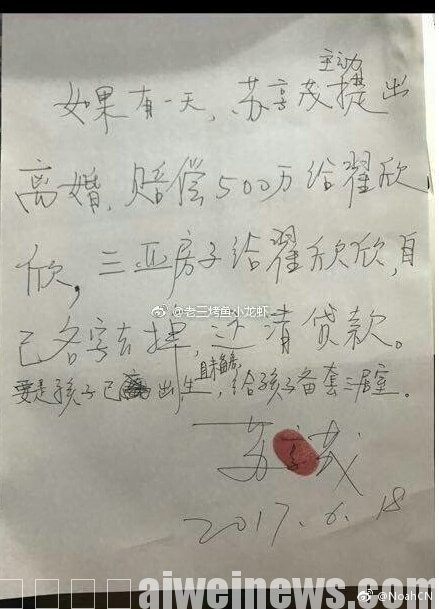 如果有一天，苏享茂主动提出
离婚，赔偿500万给翟欣
欣，三亚房子给翟欣欣，自
己名字去掉，还清贷款。
要是孩子已出生，给孩子备套三居室。
苏享茂
2017.6.18
@老三烤鱼小龙虾
aiweinews.com
@NoahCN